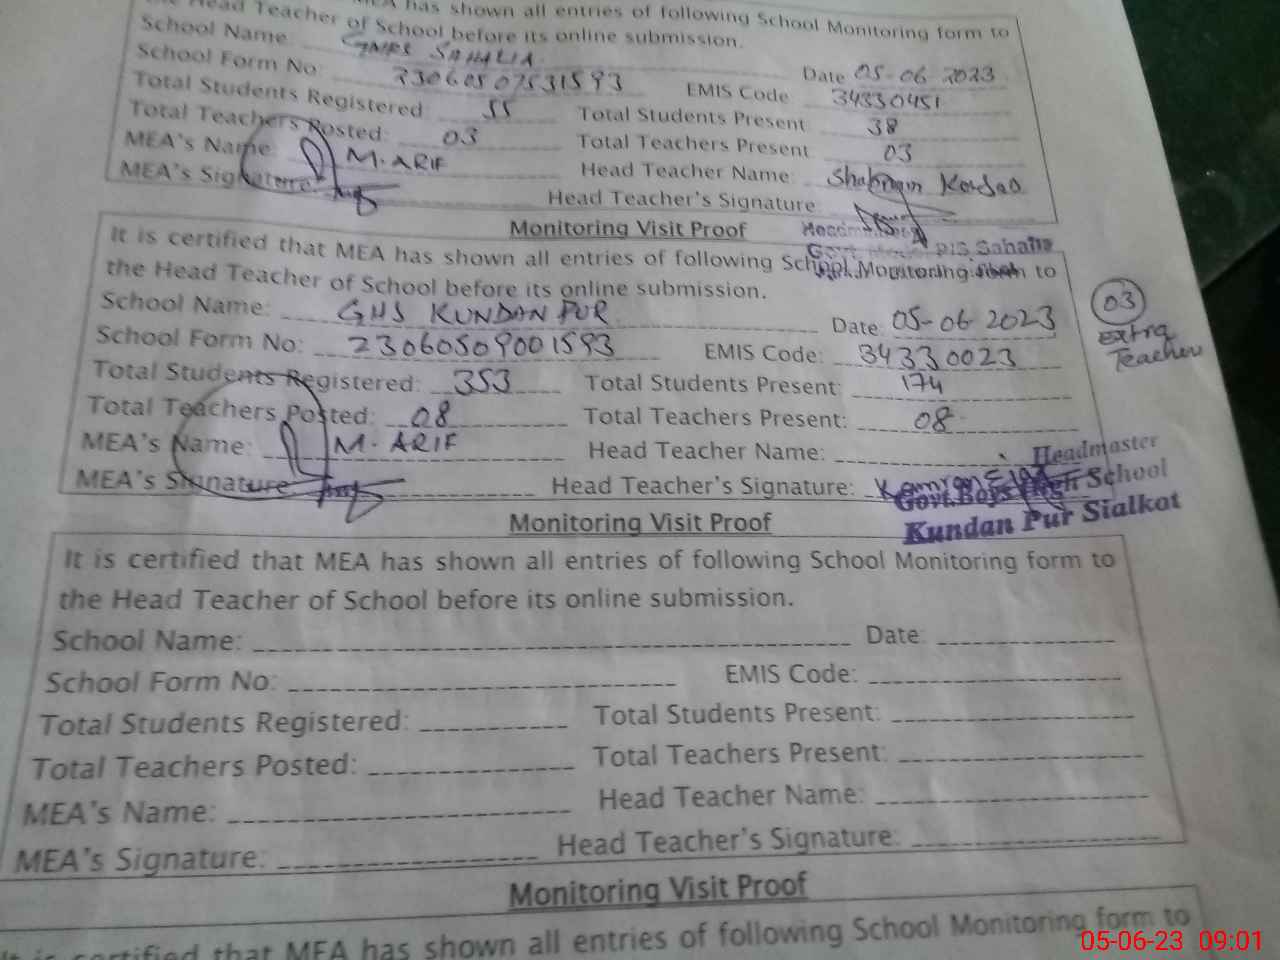 the Head Teacher MEA has shown all entries of following School Monitoring form to
of School before its online submission.
School Name: GMPS SAHALIA Date 05-06-2023
School Form No: 23060507531593 EMIS Code 34330451
Total Students Registered 55 Total Students Present 38
Total Teachers Posted: 03 Total Teachers Present 03
MEA's Name: M. ARIF Head Teacher Name:
MEA's Signature Head Teacher's Signature
Monitoring Visit Proof
It is certified that MEA has shown all entries of following School Monitoring form to
the Head Teacher of School before its online submission.
School Name: GHS KUNDAN PUR Date: 05-06-2023
School Form No: 23060509001593 EMIS Code: 34330023
Total Students Registered: 353 Total Students Present: 174
Total Teachers Posted: 08 Total Teachers Present: 08
03
extra
Teacher
MEA's Name: M. ARIF Head Teacher Name:
MEA's Signature Head Teacher's Signature:
Headmaster
Govt. Boys High School
Kundan Pur Sialkot
Monitoring Visit Proof
It is certified that MEA has shown all entries of following School Monitoring form to
the Head Teacher of School before its online submission.
School Name: Date:
School Form No: EMIS Code:
Total Students Registered: Total Students Present:
Total Teachers Posted: Total Teachers Present:
MEA's Name: Head Teacher Name:
MEA's Signature: Head Teacher's Signature:
Monitoring Visit Proof
It is certified that MEA has shown all entries of following School Monitoring form to
05-06-23 09:01